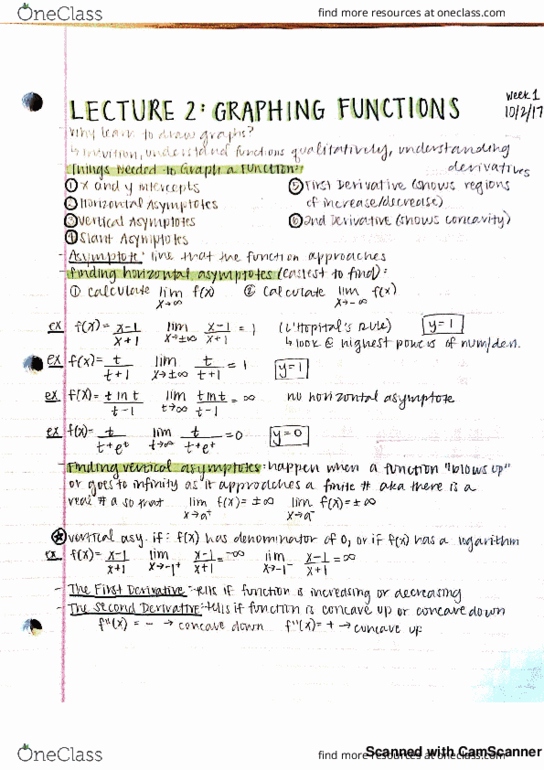 OneClass
find more resources at oneclass.com
Week 1
10/2/17
LECTURE 2: GRAPHING FUNCTIONS
- Why learn to draw graphs?
↳ intuition, understand functions qualitatively, understanding derivatives
Things Needed to Graph a Function:
① x and y intercepts
② Horizontal Asymptotes
③ Vertical Asymptotes
④ Slant Asymptotes
⑤ First Derivative (shows regions
of increase/decrease)
⑥ 2nd Derivative (shows concavity)
- Asymptote: line that the function approaches
Finding horizontal asymptotes (easiest to find):
① Calculate lim x→∞ f(x) ② Calculate lim x→-∞ f(x)
ex f(x)= x-1/x+1 lim x→±∞ x-1/x+1 = 1 (L'Hopital's Rule) y=1
↳ look @ highest powers of num/den.
ex f(x)= t/t+1 lim x→±∞ t/t+1 = 1 y=1
ex f(x)= t ln t/t-1 lim t→∞ t ln t/t-1 = ∞ no horizontal asymptote
ex f(x)= t/t+e^t lim t→∞ t/t+e^t = 0 y=0
Finding vertical asymptotes: happen when a function "blows up"
or goes to infinity as it approaches a finite # aka there is a
real # a so that lim x→a⁺ f(x)= ±∞ lim x→a⁻ f(x)= ±∞
vertical asy. if: f(x) has denominator of 0, or if f(x) has a logarithm
ex f(x)= x-1/x+1 lim x→-1⁺ x-1/x+1 = -∞ lim x→-1⁻ x-1/x+1 = ∞
- The First Derivative: tells if function is increasing or decreasing
- The Second Derivative: tells if function is concave up or concave down
f''(x) = - → concave down f''(x)= + → concave up
Scanned with CamScanner
OneClass
find more resources at oneclass.com